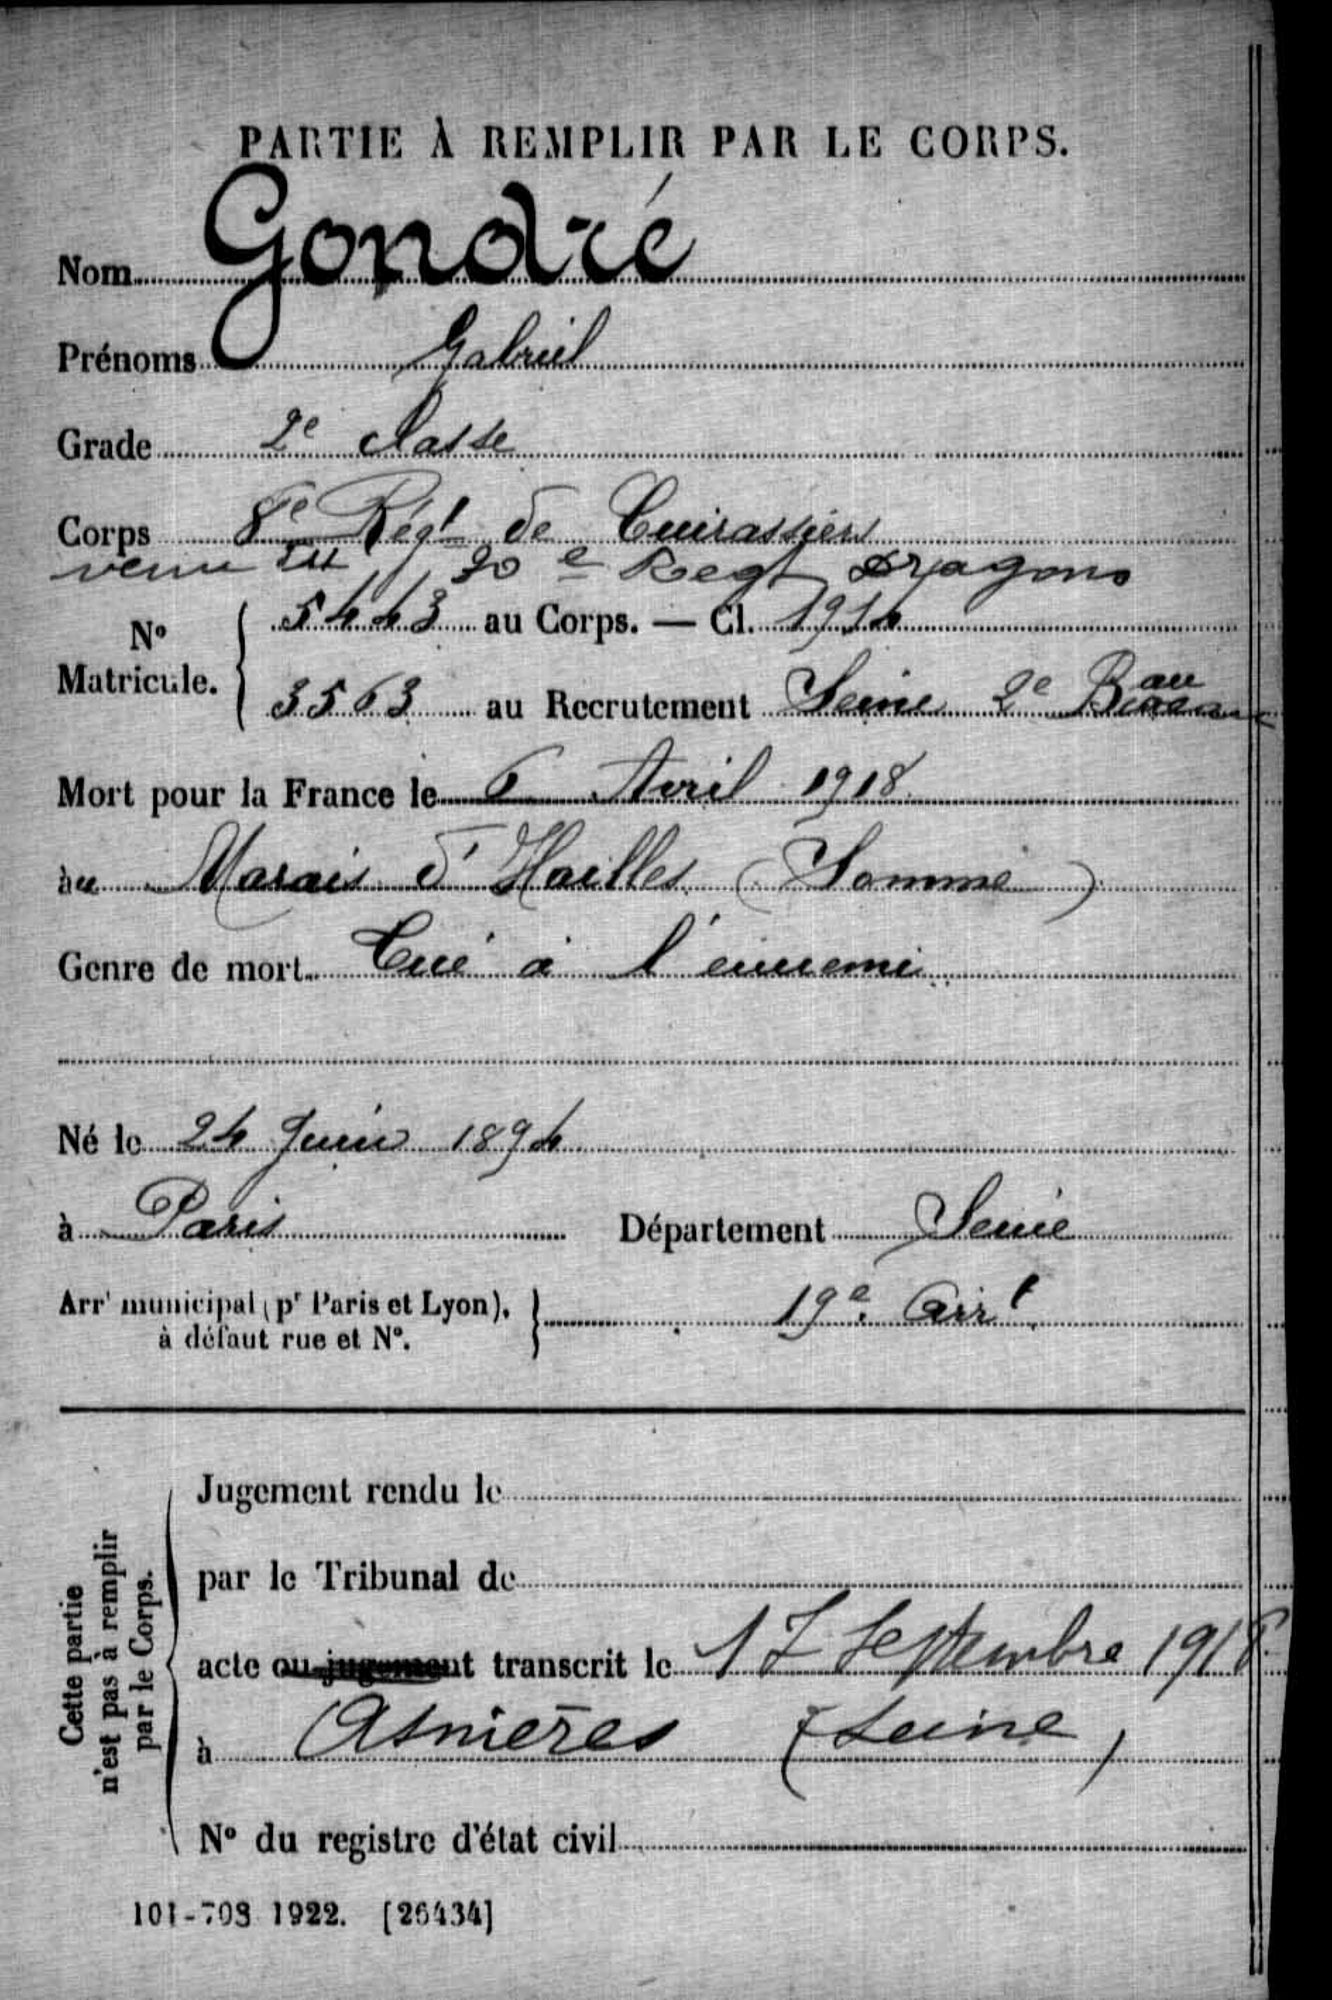 PARTIE À REMPLIR PAR LE CORPS.
Nom Gondré
Prénoms Gabriel
Grade 2e classe
Corps 8e Régt de Cuirassiers
venu du 30e Regt Dragons
No Matricule. 5443 au Corps. — Cl. 1914
3563 au Recrutement Seine 2e Bau
Mort pour la France le 6 Avril 1918
au Marais d'Hailles (Somme)
Genre de mort Tué à l'ennemi
Né le 24 Juin 1894
à Paris Département Seine
Arrt municipal (pr Paris et Lyon), à défaut rue et No. 19e Arrt
Cette partie n'est pas à remplir par le Corps.
Jugement rendu le
par le Tribunal de
acte ou jugement transcrit le 17 Septembre 1918
à Asnières (Seine)
No du registre d'état civil
101-708 1922. [26434]